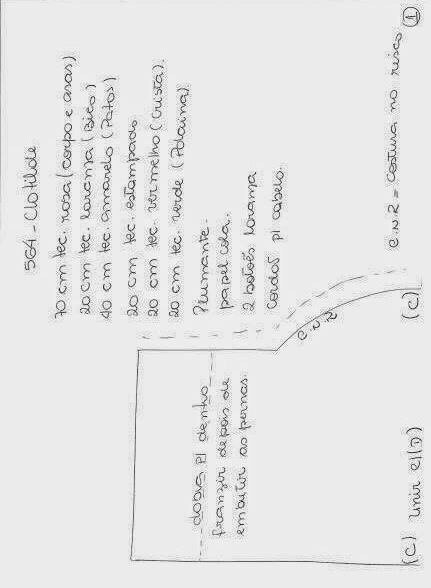 564 - Clotilde
70 cm tec. rosa (corpo e asas)
20 cm tec. laranja (Bico)
40 cm tec. amarelo (Patas)
20 cm tec. estampado
20 cm tec. vermelho (Crista).
20 cm tec. verde (Polaina).
Plumante.
papel cola.
2 botões laranja
Cordão p/ cabelo.
C.N.R = Costura no risco
1
C.N.R
dobra p/ dentro
franzir depois de
embutir as pernas.
(C) unir c/(D)
(C)